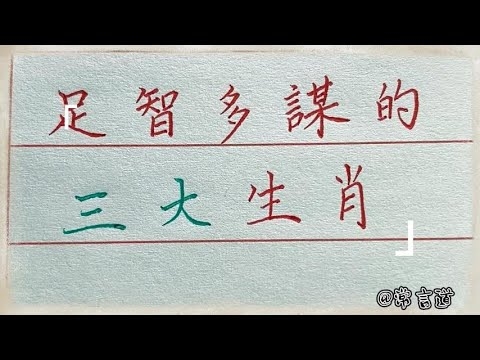 「足智多謀的
三大生肖」
@常言道